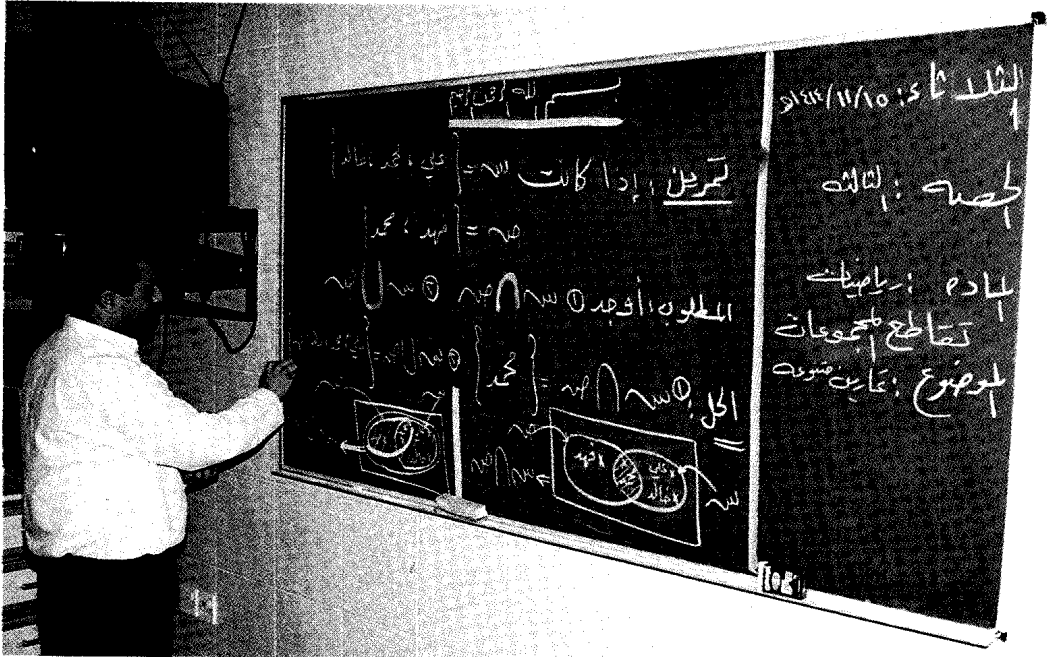 الثلاثاء: ١٤١٤/١١/١٥هـ
الحصه: الثالثه
الماده: رياضيات
تقاطع المجموعات
الموضوع: تمارين متنوعه
بسم الله الرحمن الرحيم
تمرين: إذا كانت س = {علي ، محمد ، خالد}
ص = {فهد ، محمد}
المطلوب: أوجد ① س ∩ ص ② س ∪ ص
الحل: ① س ∩ ص = {محمد}
س
علي
خالد
فهد
ص
س ∩ ص
② س ∪ ص = {